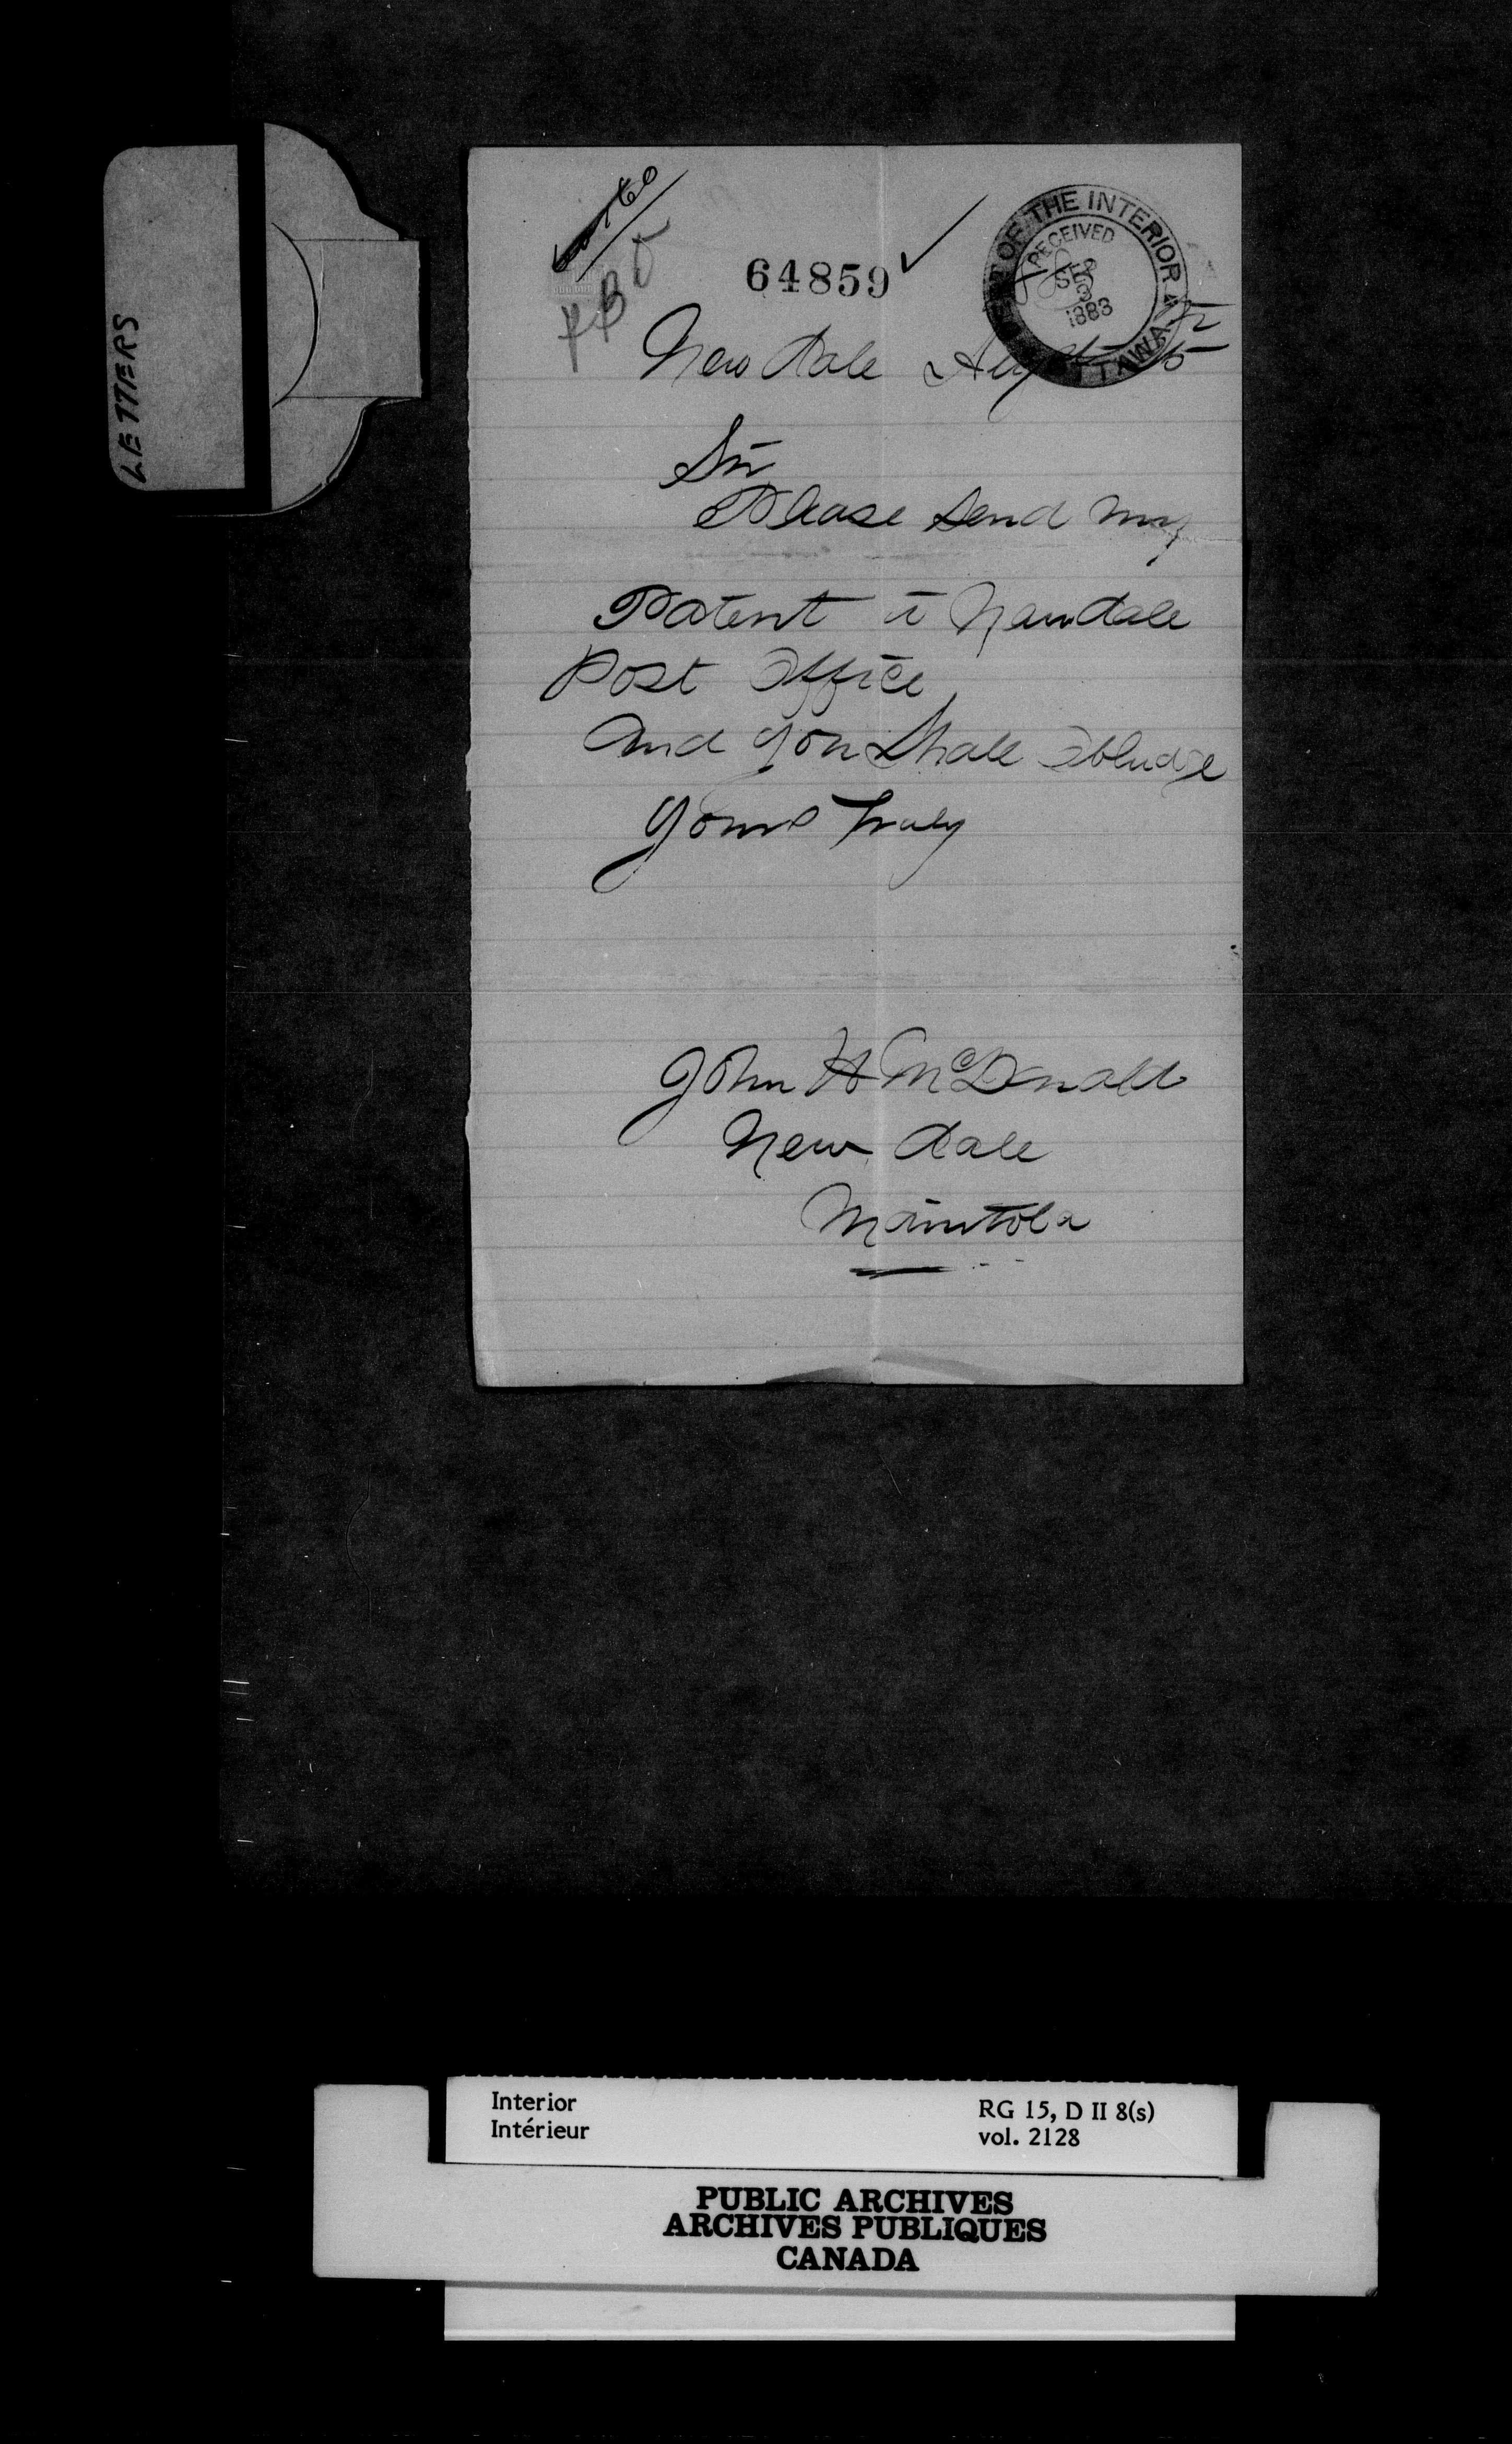 LETTERS
64859
DEPT OF THE INTERIOR
OTTAWA
RECEIVED
SEP
3
1883
New dale Augst 15
Sir
Please Send my
Patent to Newdale
Post Office
And you Shall Obludge
Yours Truly
John H McDonald
New dale
Manitoba
Interior
Intérieur
RG 15, D II 8(s)
vol. 2128
PUBLIC ARCHIVES
ARCHIVES PUBLIQUES
CANADA